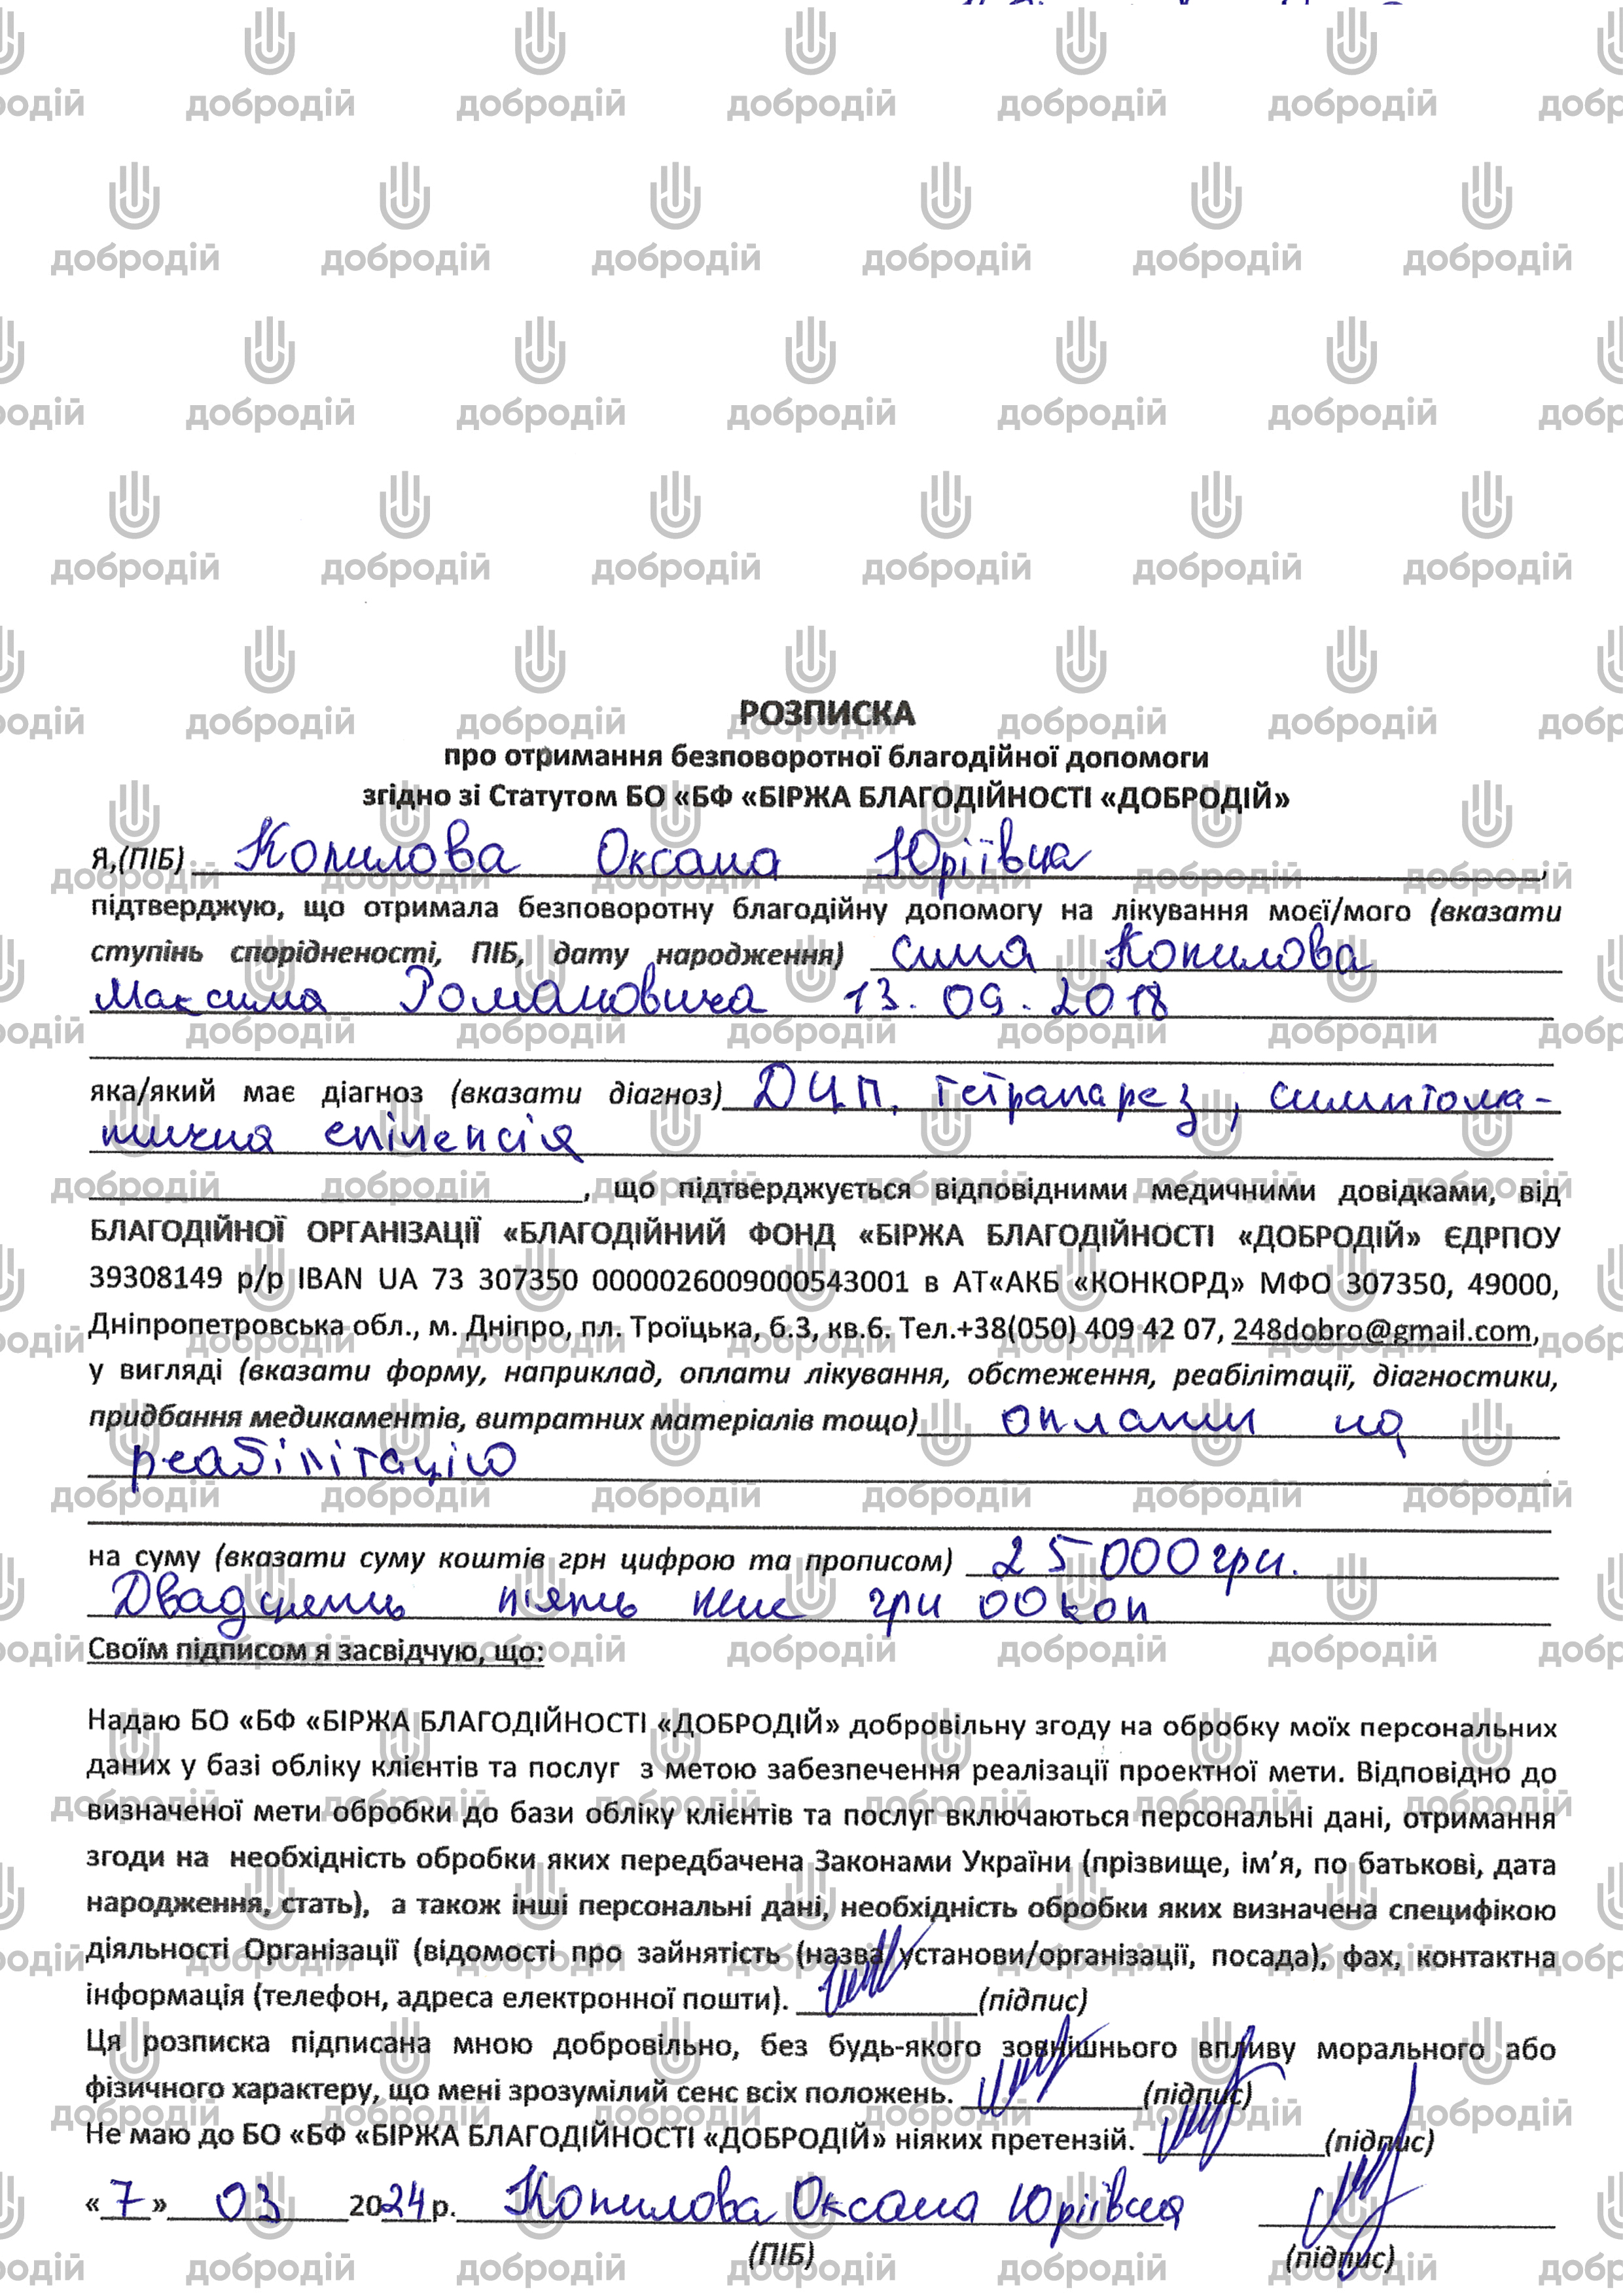 РОЗПИСКА
про отримання безповоротної благодійної допомоги
згідно зі Статутом БО «БФ «БІРЖА БЛАГОДІЙНОСТІ «ДОБРОДІЙ»
Я,(ПІБ) Копилова Оксана Юріївна,
підтверджую, що отримала безповоротну благодійну допомогу на лікування моєї/мого (вказати
ступінь спорідненості, ПІБ, дату народження) сина Копилова
Максима Романовича 13.09.2018
яка/який має діагноз (вказати діагноз) ДЦП, тетрапарез, симптома-
тична епілепсія
, що підтверджується відповідними медичними довідками, від
БЛАГОДІЙНОЇ ОРГАНІЗАЦІЇ «БЛАГОДІЙНИЙ ФОНД «БІРЖА БЛАГОДІЙНОСТІ «ДОБРОДІЙ» ЄДРПОУ
39308149 р/р IBAN UA 73 307350 0000026009000543001 в АТ«АКБ «КОНКОРД» МФО 307350, 49000,
Дніпропетровська обл., м. Дніпро, пл. Троїцька, б.3, кв.6. Тел.+38(050) 409 42 07, 248dobro@gmail.com,
у вигляді (вказати форму, наприклад, оплати лікування, обстеження, реабілітації, діагностики,
придбання медикаментів, витратних матеріалів тощо) оплати на
реабілітацію
на суму (вказати суму коштів грн цифрою та прописом) 25000грн.
Двадцять п'ять тис грн 00коп
Своїм підписом я засвідчую, що:
Надаю БО «БФ «БІРЖА БЛАГОДІЙНОСТІ «ДОБРОДІЙ» добровільну згоду на обробку моїх персональних
даних у базі обліку клієнтів та послуг з метою забезпечення реалізації проектної мети. Відповідно до
визначеної мети обробки до бази обліку клієнтів та послуг включаються персональні дані, отримання
згоди на необхідність обробки яких передбачена Законами України (прізвище, ім’я, по батькові, дата
народження, стать), а також інші персональні дані, необхідність обробки яких визначена специфікою
діяльності Організації (відомості про зайнятість (назва установи/організації, посада), фах, контактна
інформація (телефон, адреса електронної пошти). (підпис)
Ця розписка підписана мною добровільно, без будь-якого зовнішнього впливу морального або
фізичного характеру, що мені зрозумілий сенс всіх положень. (підпис)
Не маю до БО «БФ «БІРЖА БЛАГОДІЙНОСТІ «ДОБРОДІЙ» ніяких претензій. (підпис)
«7» 03 2024р. Копилова Оксана Юріївна
(ПІБ) (підпис)
добродій